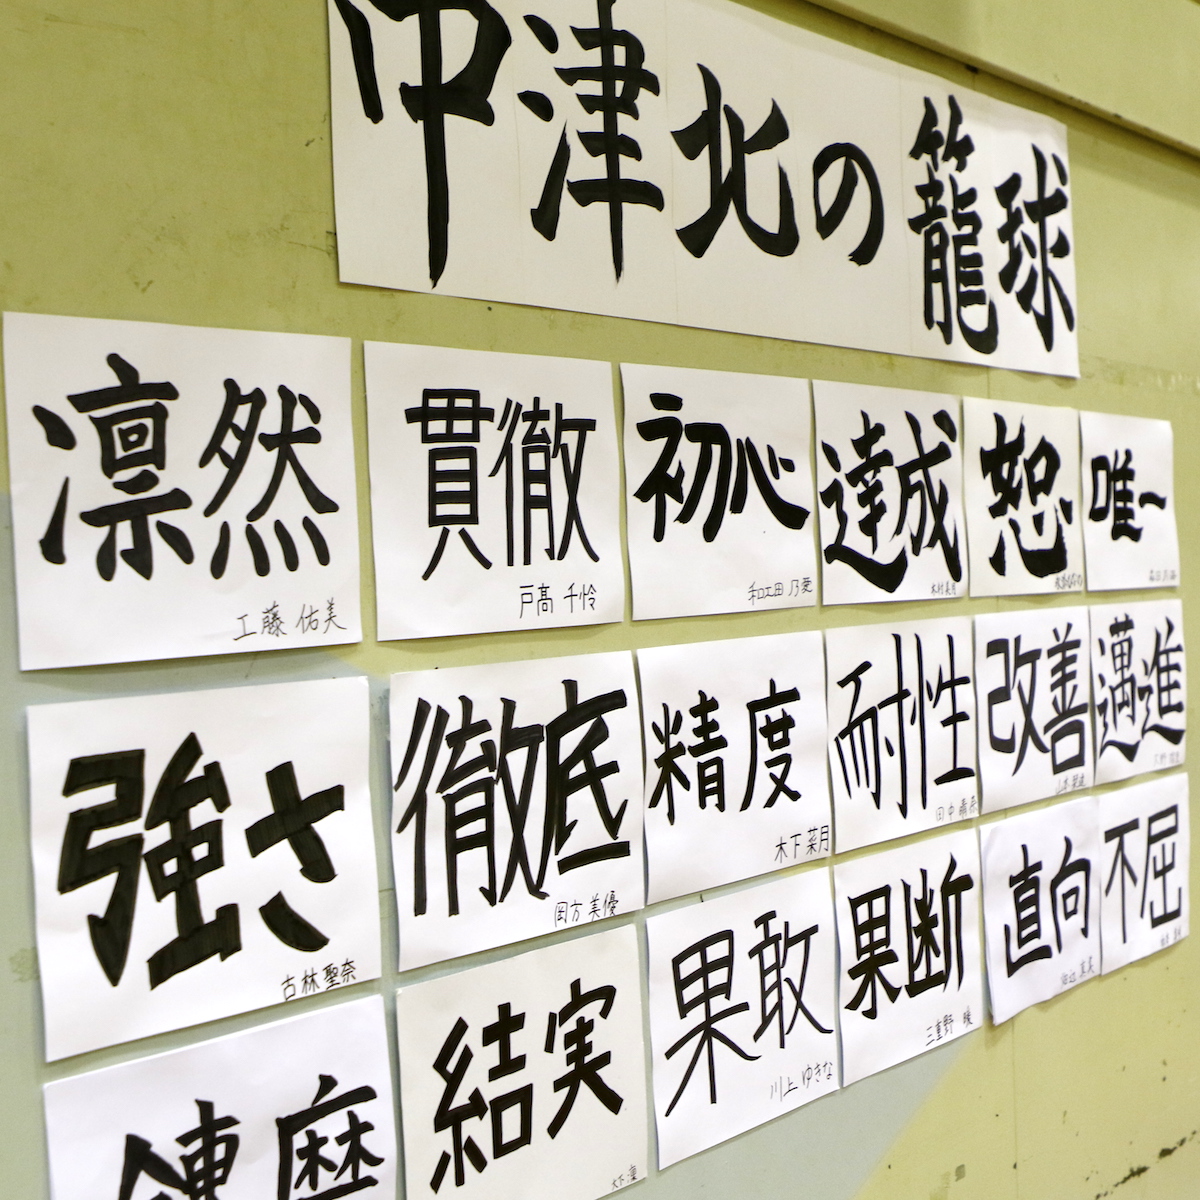 中津北の籠球
凛然
工藤 佑美
貫徹
戸髙 千怜
初心
和江田 乃愛
達成
木村美月
恕
唯一
強さ
古林聖奈
徹底
岡方美優
精度
木下菜月
耐性
田中
改善
邁進
錬磨
結実
木下凜
果敢
川上 ゆきな
果断
三重野 暖
直向
不屈